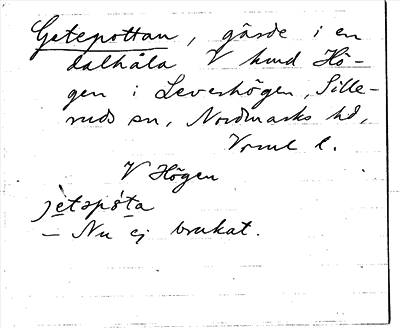 Getepottan, gärde i en
dalhåla V hmd Hö-
gen i Levershögen, Sille-
ruds sn, Nordmarks hd,
Vrml l.
V Högen
jètəpɷ́ta
— Nu ej brukat.